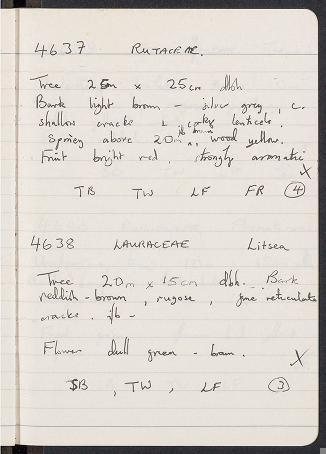 4637 RUTACEAE.
Tree 25m x 25cm dbh
Bark light brown - silver grey, c.
shallow cracks & corky lenticels.
ib brown
Spring above 20m, wood yellow.
Fruit bright red, strongly aromatic
X
TB TW LF FR 4
4638 LAURACEAE Litsea
Tree 20m x 15cm dbh. Bark
reddish-brown, rugose, fine reticulate
cracks. ib -
Flower dull green - brown.
X
SB, TW, LF 3